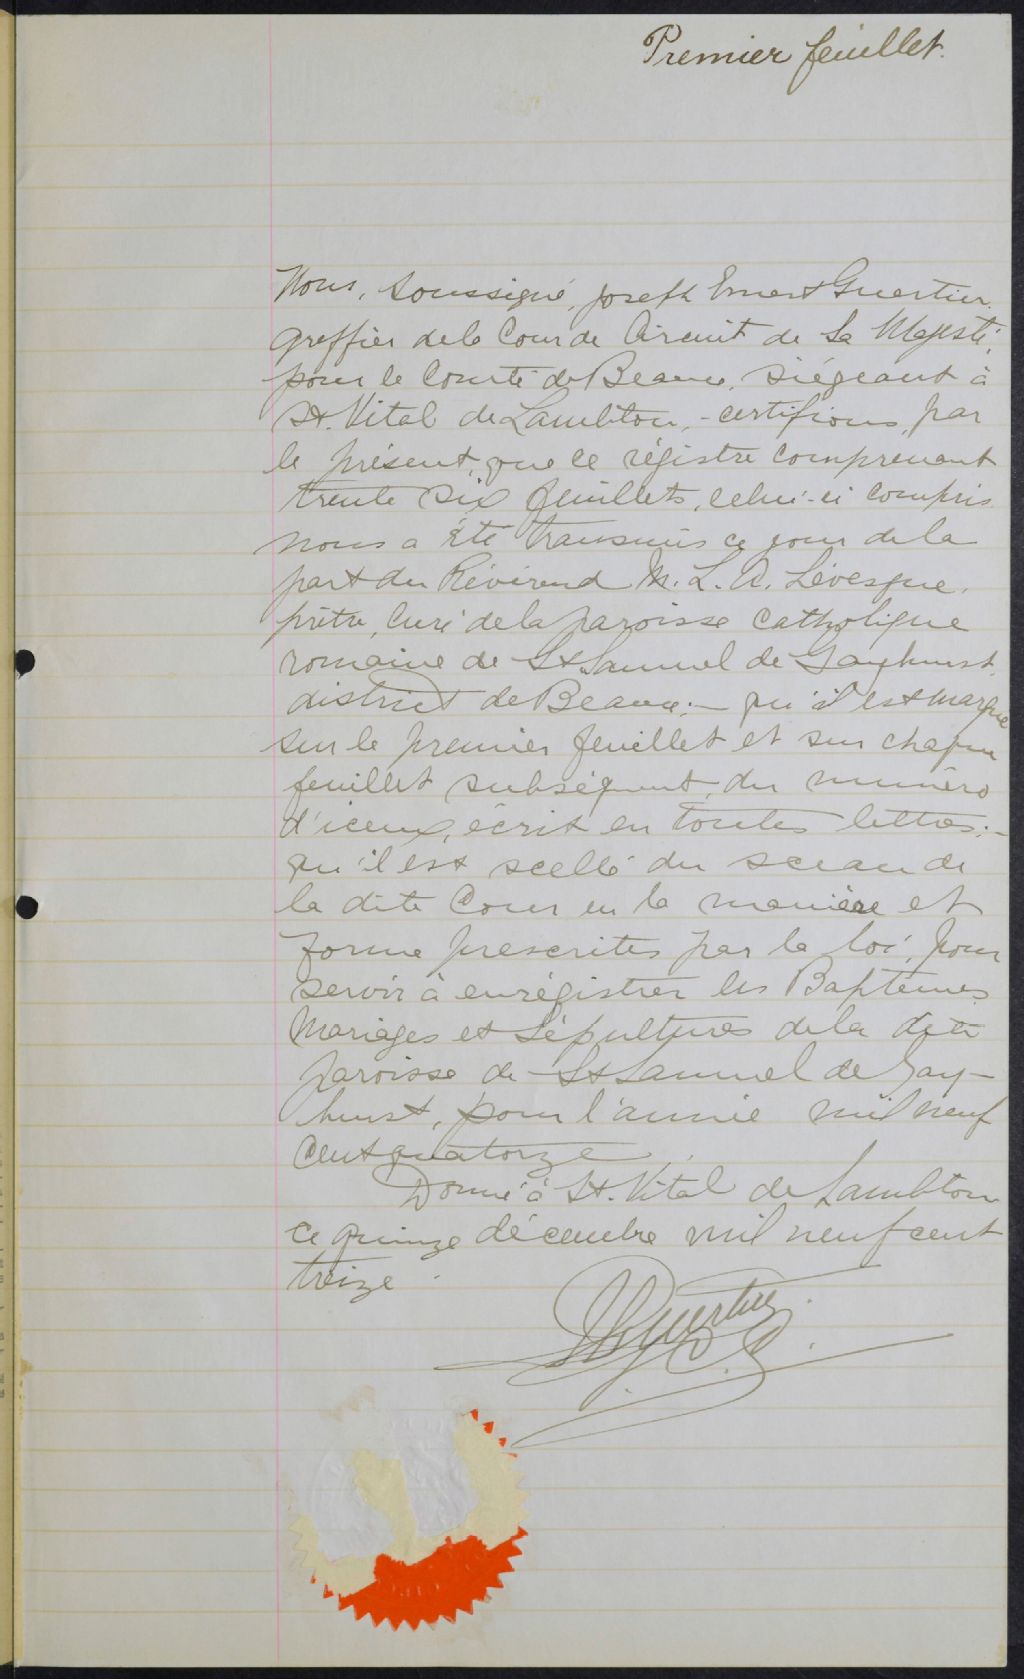 Premier feuillet.
Nous, soussigné, Joseph Ernest Guertin,
greffier de la Cour de Circuit de Sa Majesté,
pour le Comté de Beauce, siégeant à
St. Vital de Lambton, - certifions, par
le présent, que ce régistre comprenant
trente six feuillets, celui-ci compris
nous a été transmis ce jour de la
part du Révérend M. L. A. Lévesque,
prêtre, Curé de la paroisse Catholique
romaine de St Samuel de Gayhurst,
district de Beauce; - qu'il est marqué
sur le premier feuillet et sur chaque
feuillet subséquent, du numéro
d'iceux, écrit en toutes lettres; -
qu'il est scellé du sceau de
la dite Cour en la manière et
forme prescrites par la loi, pour
servir à enrégistrer les Baptêmes
Mariages et Sépultures de la dite
paroisse de St Samuel de Gay-
hurst, pour l'année mil neuf
cent quatorze.
Donné à St. Vital de Lambton
ce quinze décembre mil neuf cent
treize.
Guertin